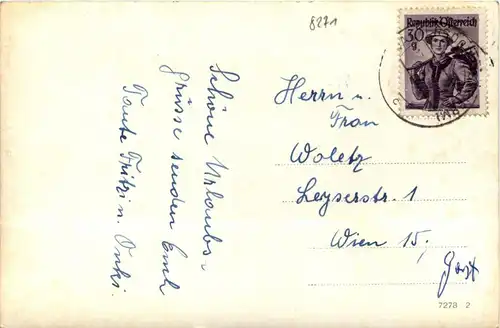 8271
Republik Österreich
30
g
Schöne Urlaubs-
grüsse senden Euch
Tante Fritzi u. Onki.
Herrn u.
Frau
Woletz
Leyserstr. 1
Wien 15,
7278 2